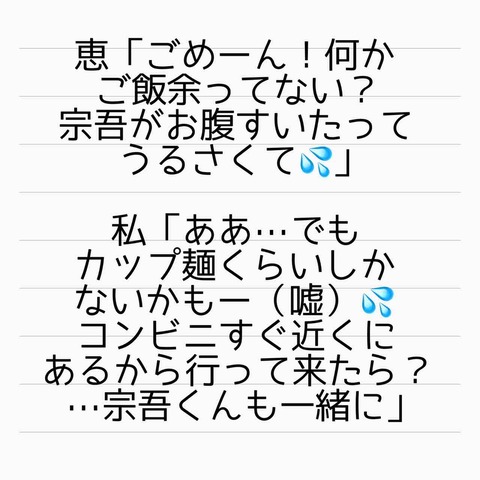 恵「ごめーん！何か
ご飯余ってない？
宗吾がお腹すいたって
うるさくて💦」
私「ああ…でも
カップ麺くらいしか
ないかもー（嘘）💦
コンビニすぐ近くに
あるから行って来たら？
…宗吾くんも一緒に」